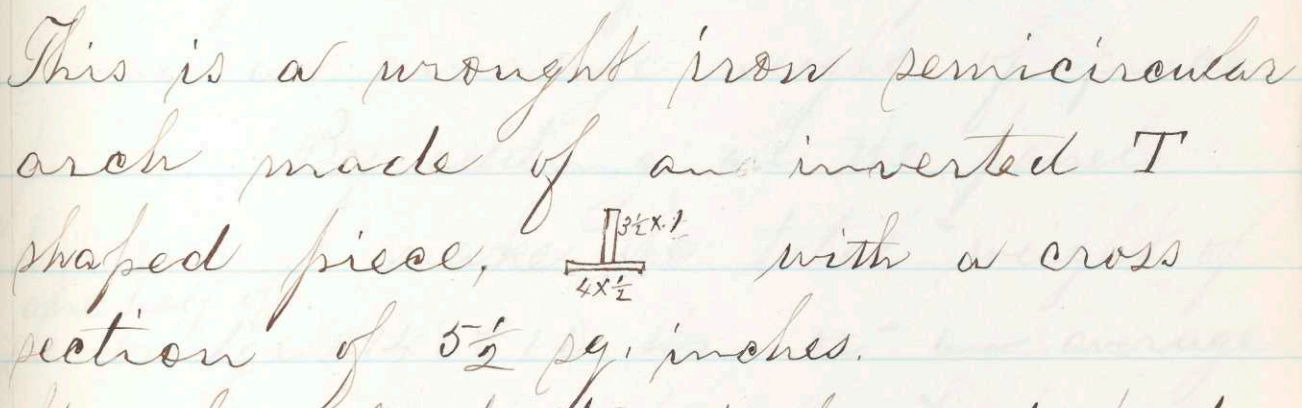 This is a wrought iron semicircular
arch made of an inverted T
shaped piece, 3½ x 1 with a cross
4 x ½
section of 5½ sq. inches.